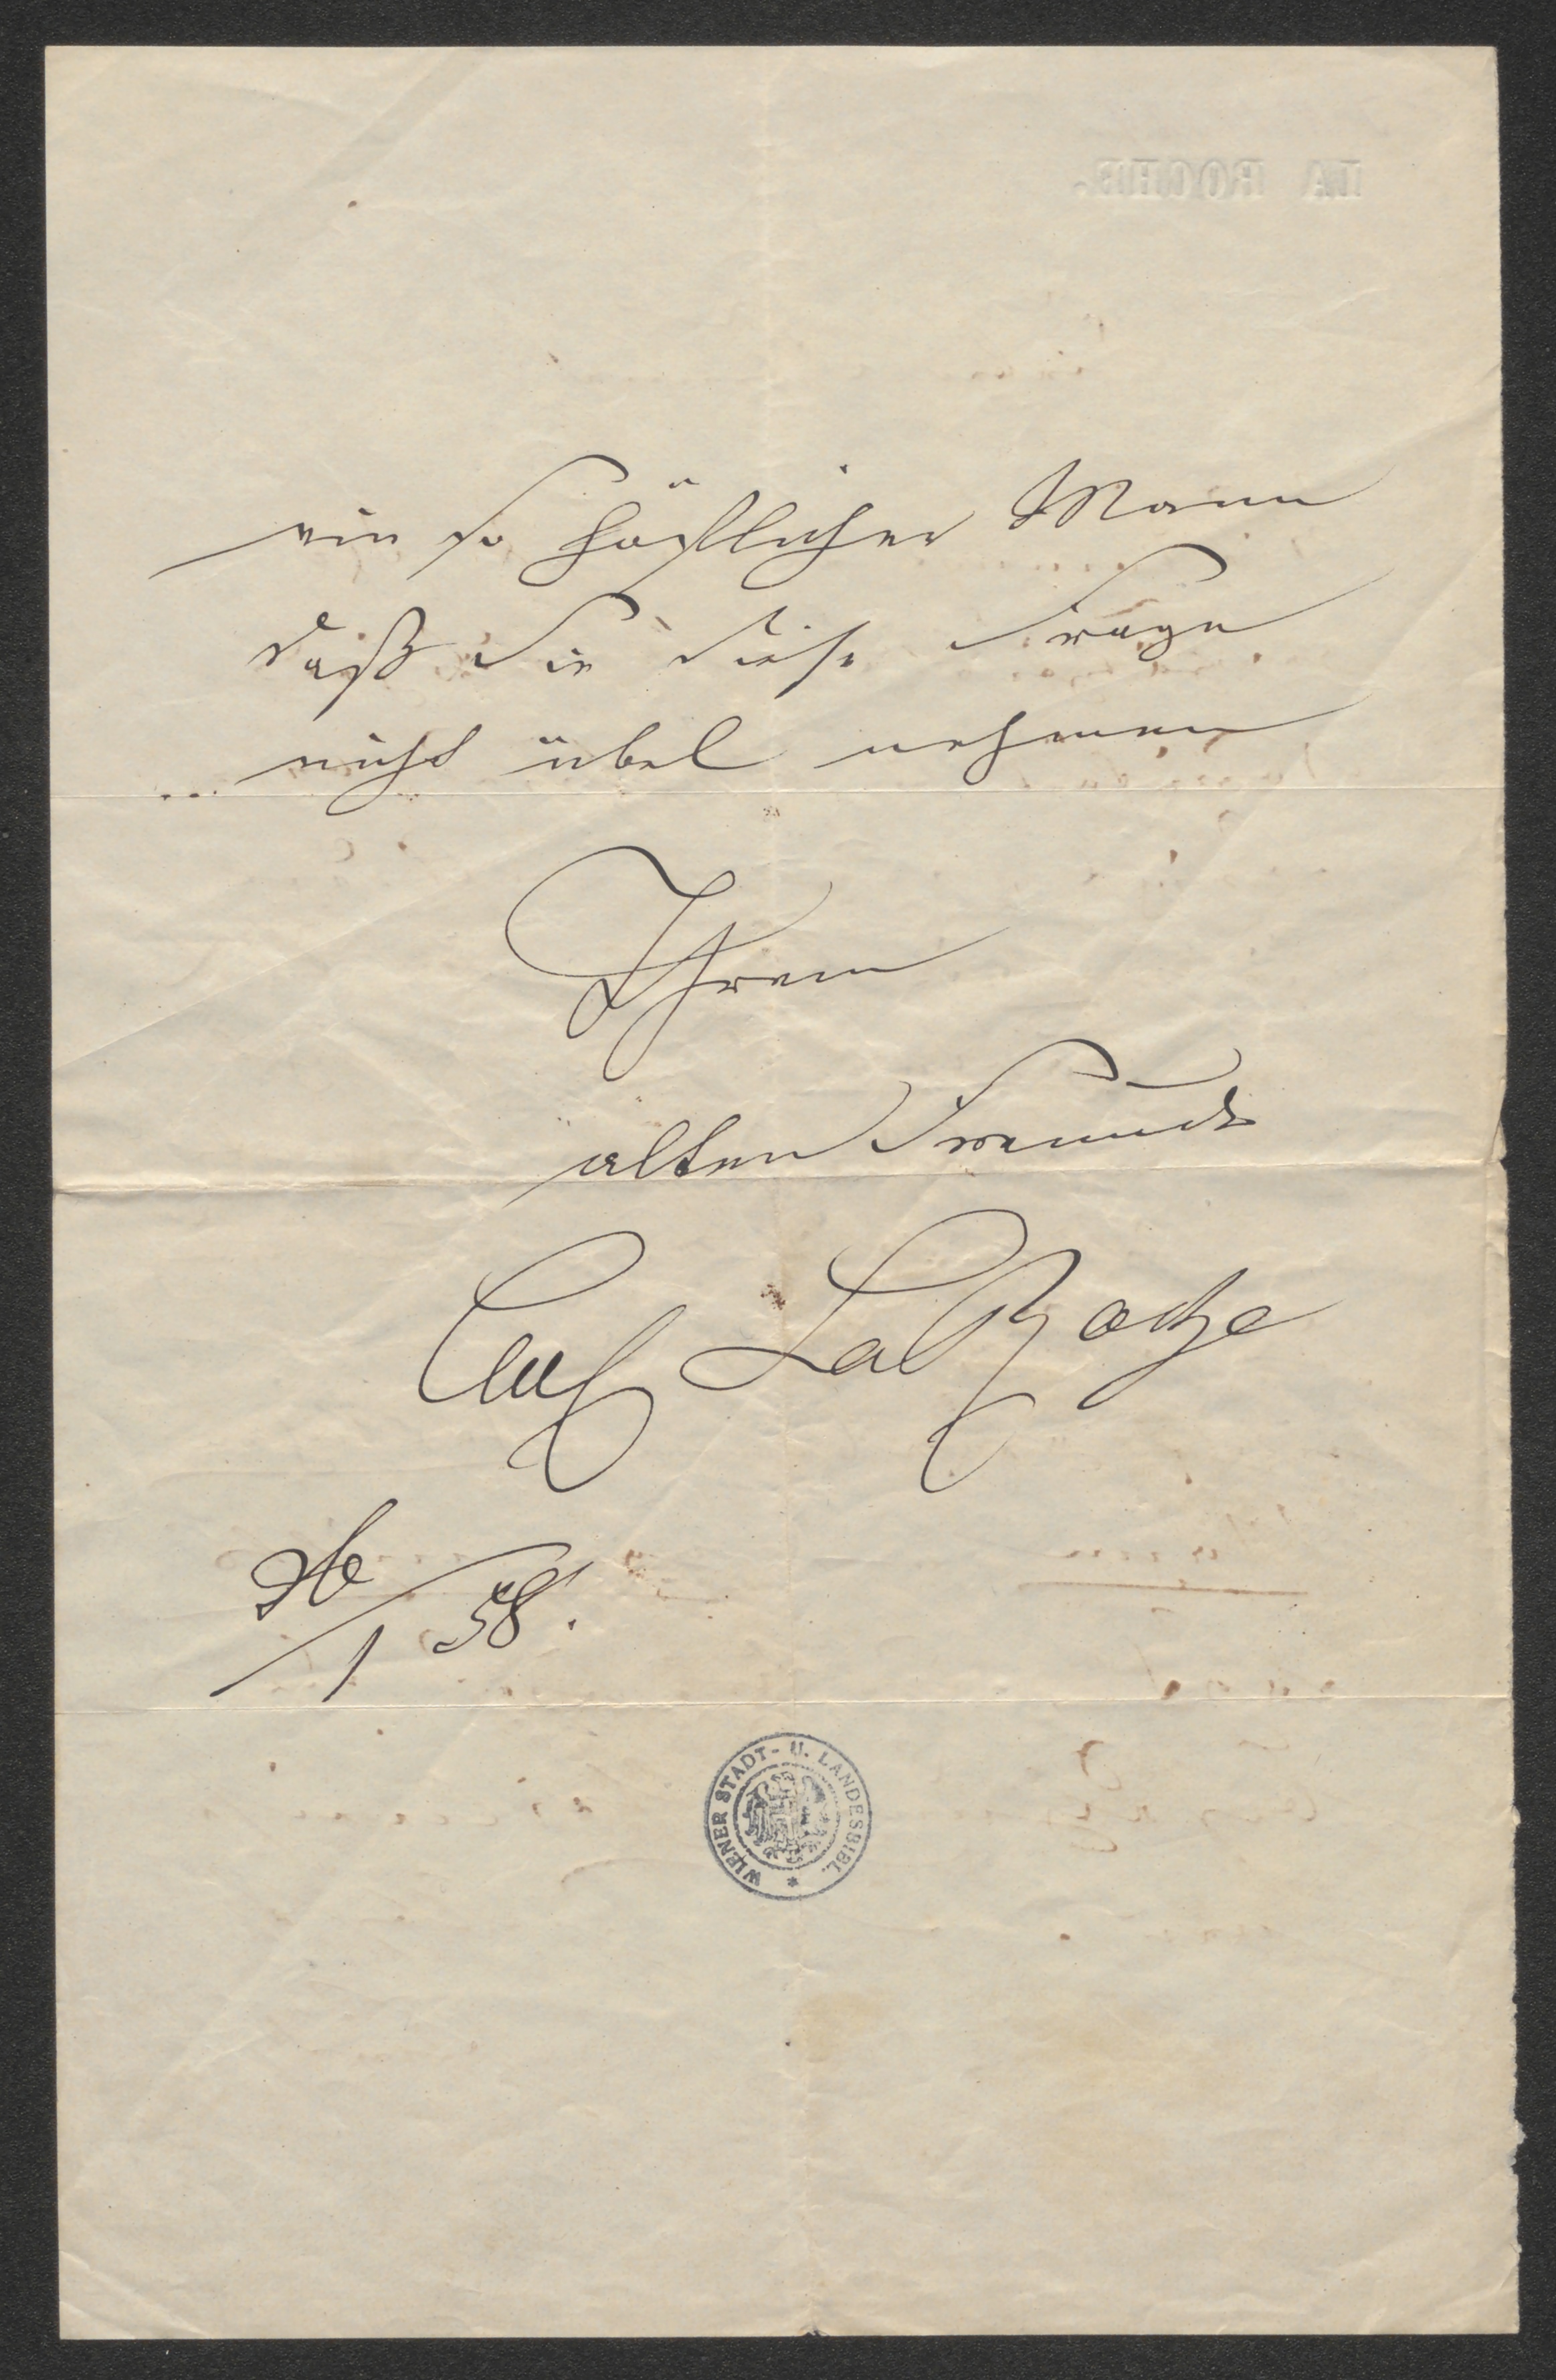 LA ROCHE.
ein so höflicher Mann
daß Sie diese Frage
nicht übel nehmen
Ihrem
alten Freunde
La Roche
1 58.
WIENER STADT- U. LANDESBIBL.